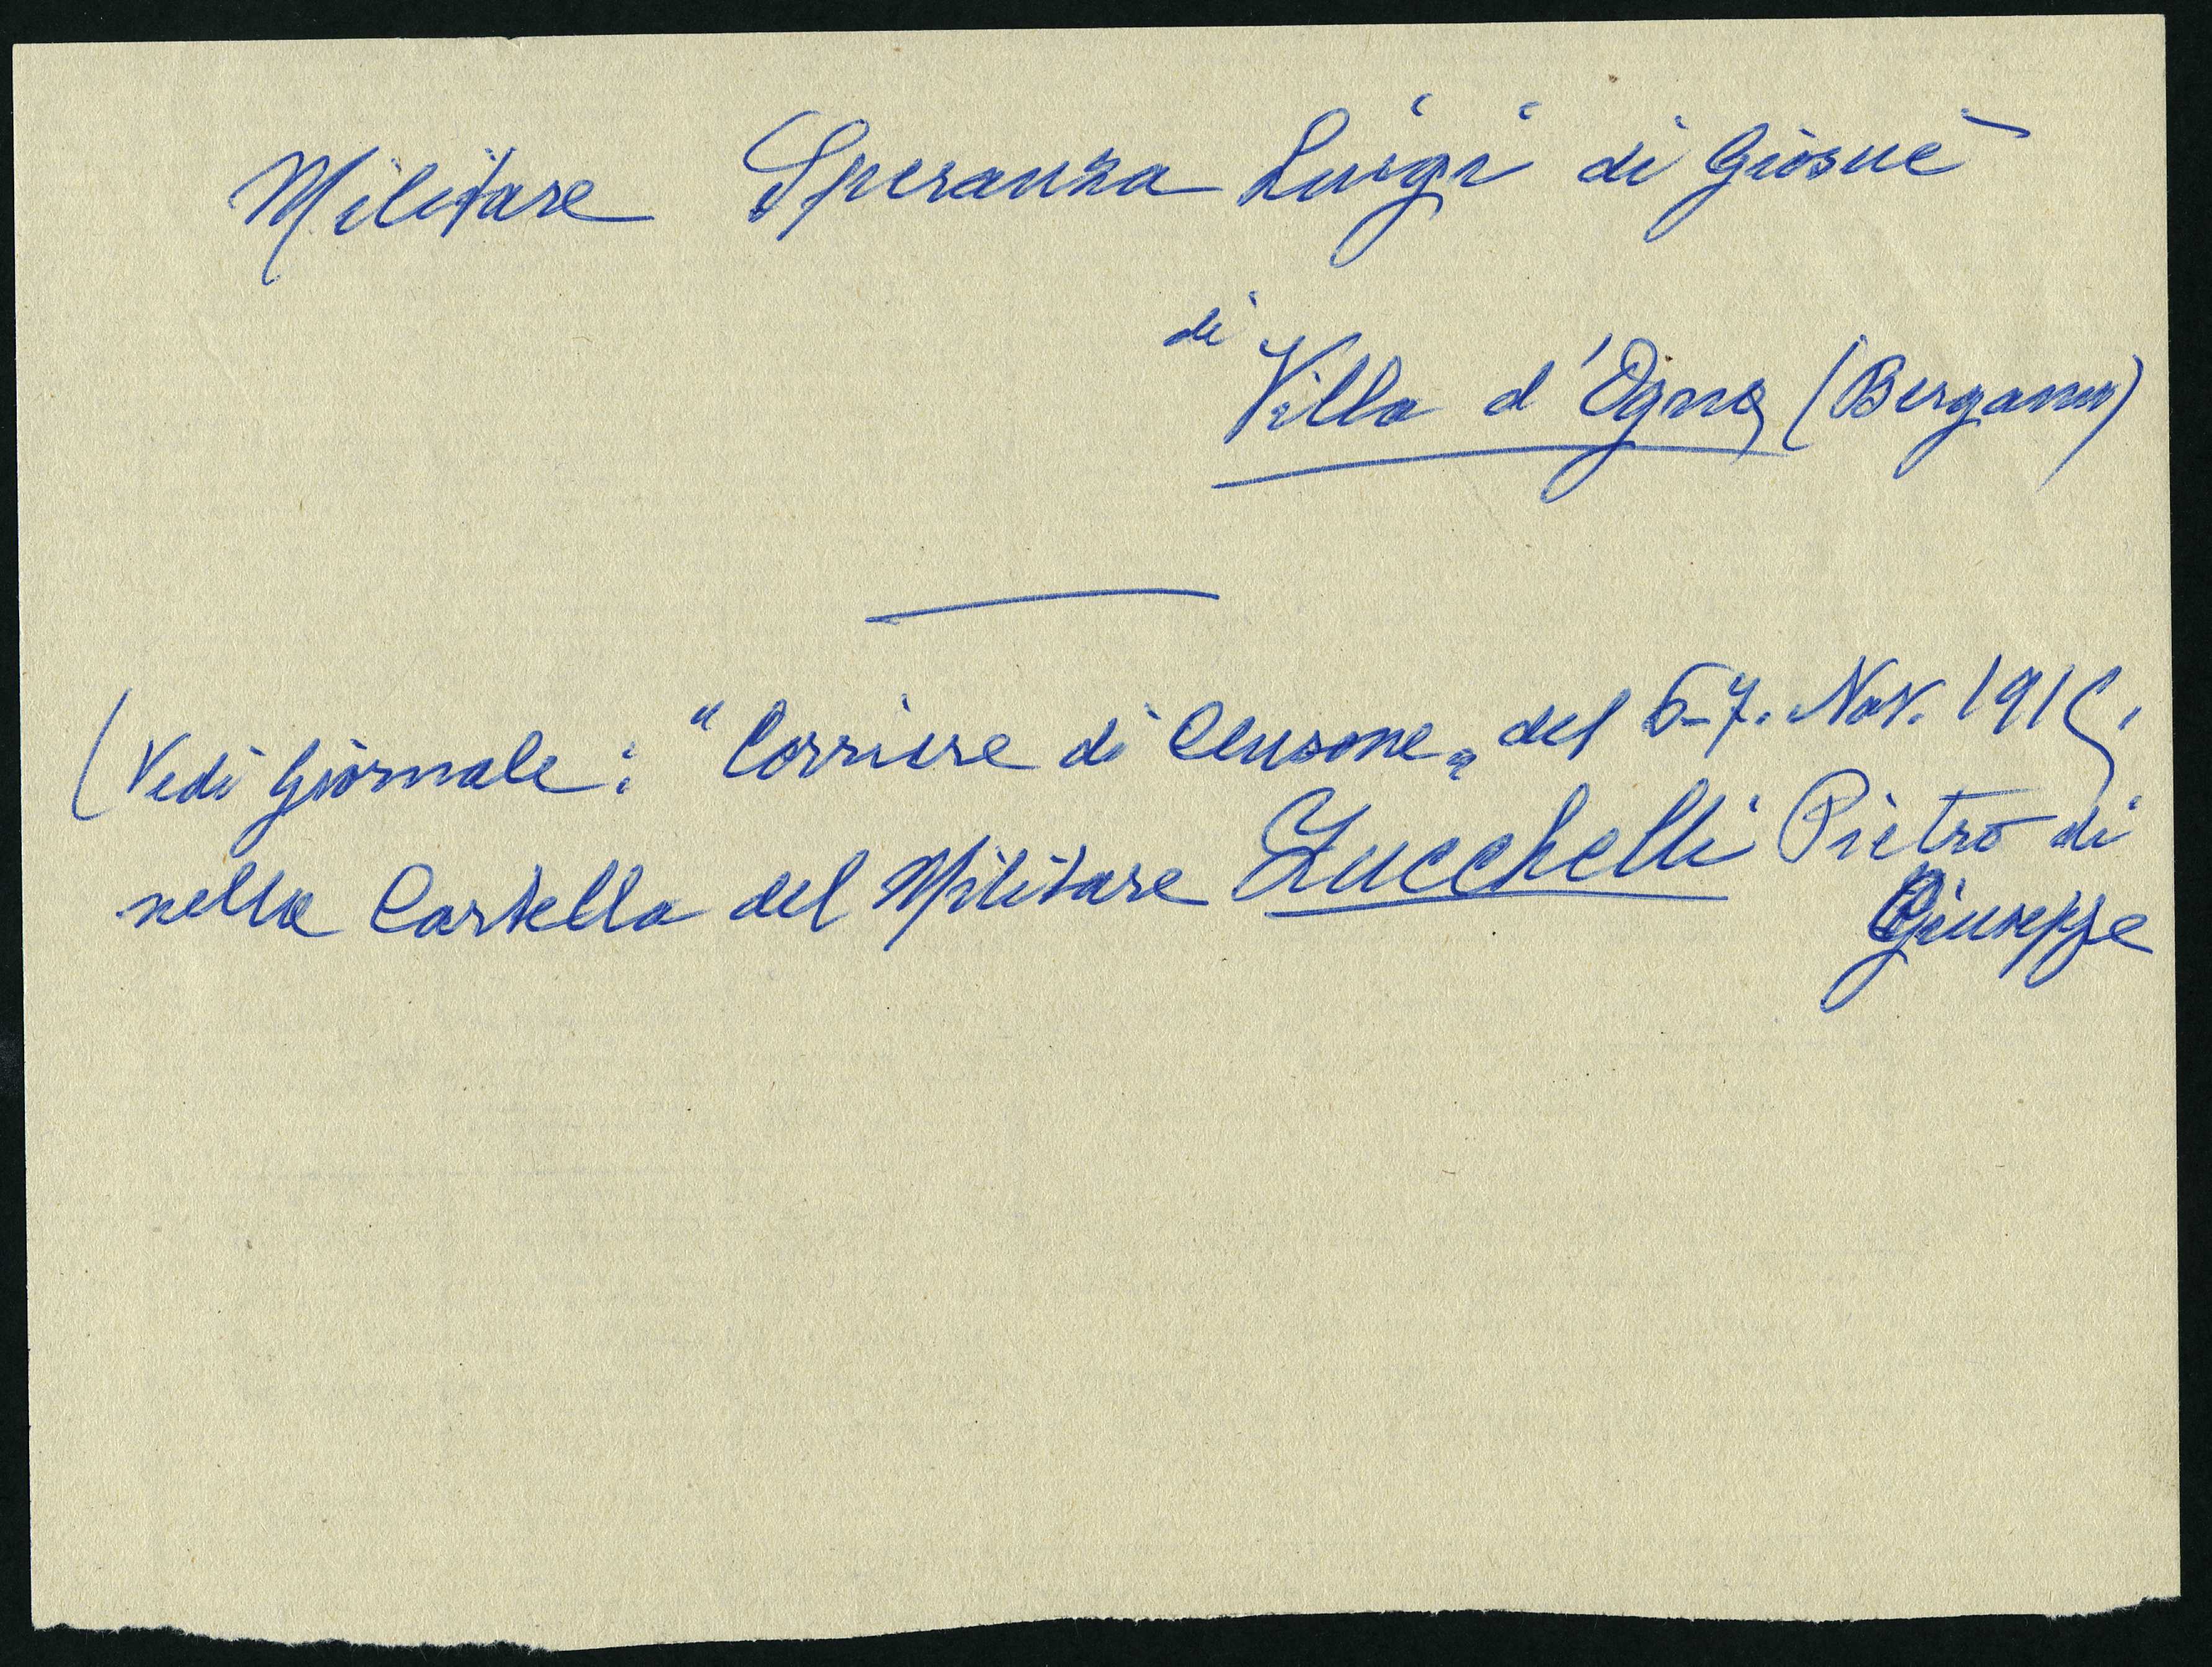 Militare Speranza Luigi di Giosuè
di
Villa d'Ogna (Bergamo)
(Vedi Giornale: "Corriere di Clusone" del 6-7. Nov. 1915,
nella Cartella del Militare Zucchelli Pietro di
Giuseppe